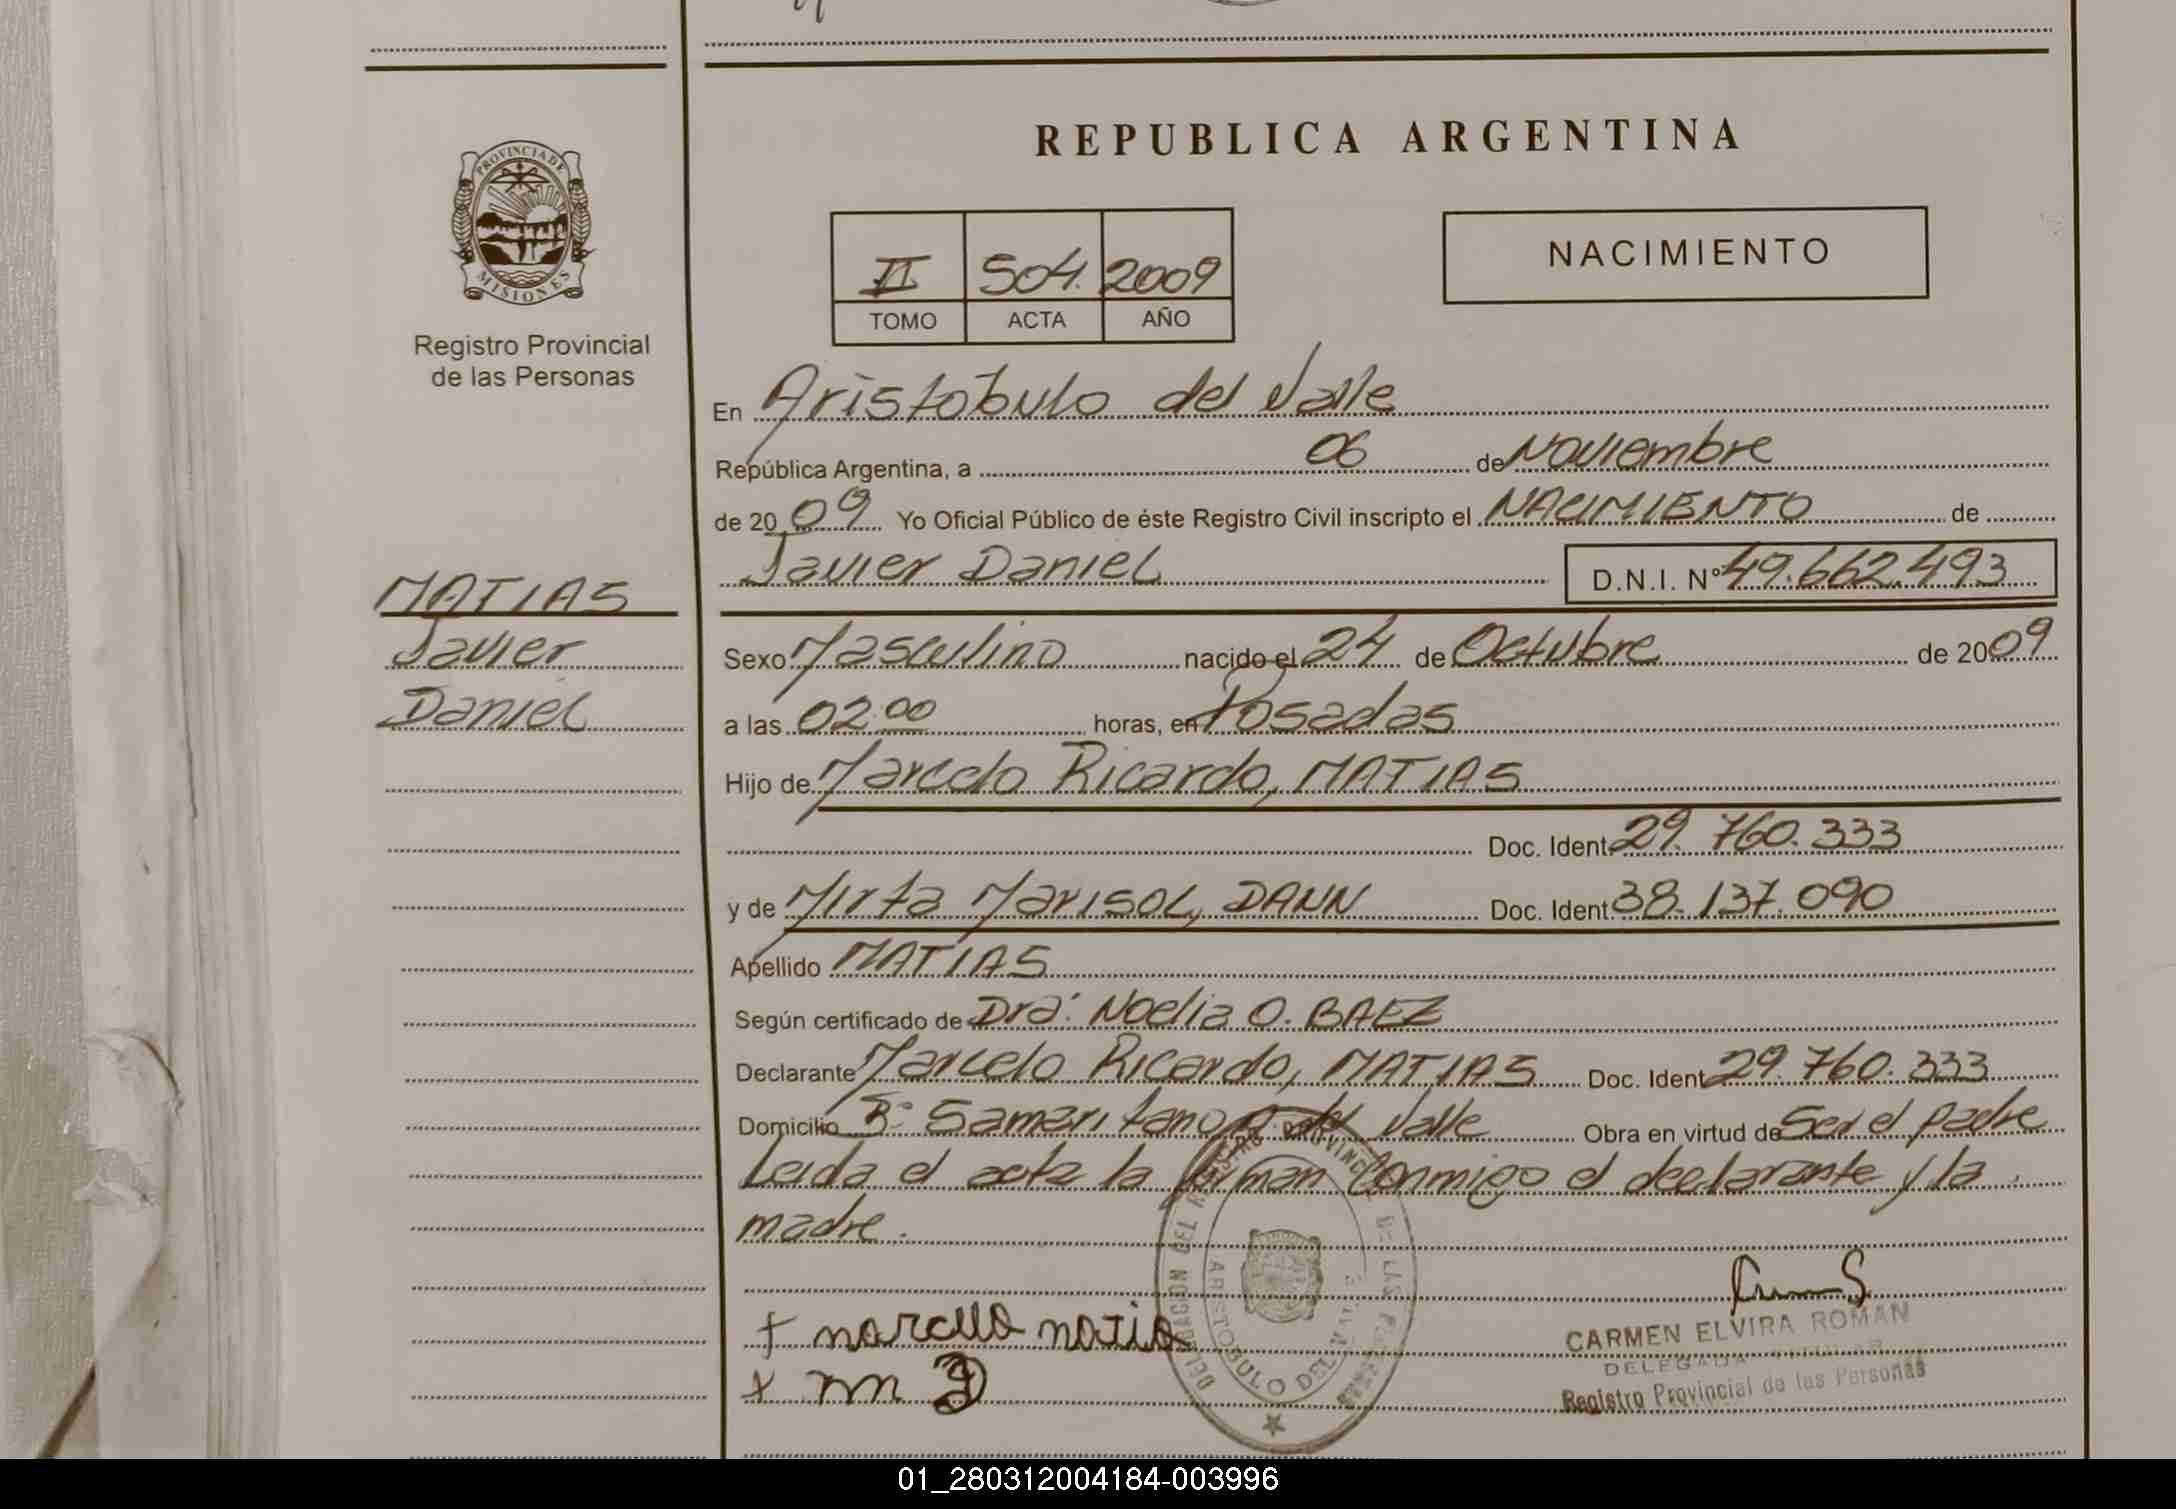 REPUBLICA ARGENTINA
PROVINCIA DE
MISIONES
Registro Provincial
de las Personas
NACIMIENTO
II 504. 2009
TOMO ACTA AÑO
En Aristóbulo del Valle
República Argentina, a 06 de Noviembre
de 2009 Yo Oficial Público de éste Registro Civil inscripto el NACIMIENTO de
Javier Daniel D.N.I. Nº 49.662.493
MATIAS
Javier
Daniel
Sexo Masculino nacido el 24 de Octubre de 2009
a las 02:00 horas, en Posadas
Hijo de Marcelo Ricardo, MATIAS
Doc. Ident. 29.760.333
y de Mirta Marisol, DANN Doc. Ident. 38.137.090
Apellido MATIAS
Según certificado de Dra: Noelia O. BAEZ
Declarante Marcelo Ricardo, MATIAS Doc. Ident. 29.760.333
Domicilio Bº Samaritano A. del Valle Obra en virtud de Ser el padre
Leida el acta la firman Conmigo el declarante y la
madre.
+ marcelo matias
x m D
DELEGACION DEL REGISTRO PROVINCIAL DE LAS PERSONAS
ARISTOBULO DEL VALLE
CARMEN ELVIRA ROMAN
DELEGADA TITULAR
Registro Provincial de las Personas
01_280312004184-003996